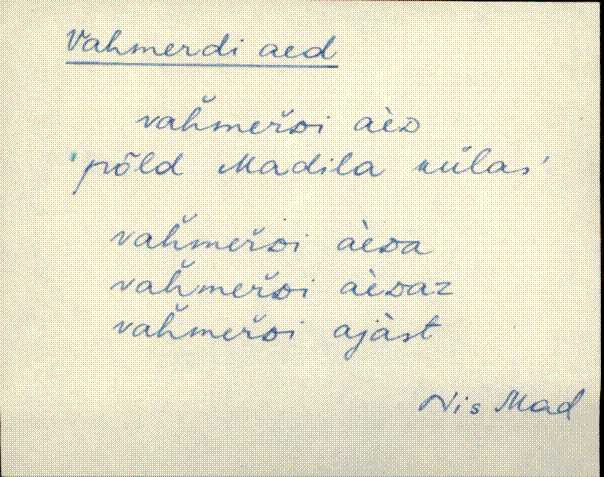 Vahmerdi aed
vah̆mer̆ᴅi àeᴅ
'põld Madila külas'
vah̆mer̆ᴅi àeᴅa
vah̆mer̆ᴅi àeᴅaz
vah̆mer̆ᴅi ajàst
Nis Mad